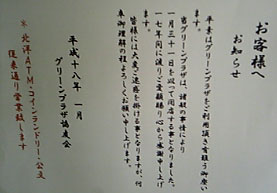 お客様へ
お知らせ
平素はグリーンプラザをご利用頂き有難う御座い
ます。
グリーンプラザは、諸般の事情により
一月三十一日を以って閉店する事となりました。
十七年間に渡りご愛顧賜り心から感謝申し上げ
ます。
皆様には大変ご迷惑を掛ける事となりますが、何
卒御理解の程よろしくお願い申し上げます。
平成十八年 一月
グリーンプラザ協友会
※北洋ATM・コインランドリー・公文
従来通り営業致します